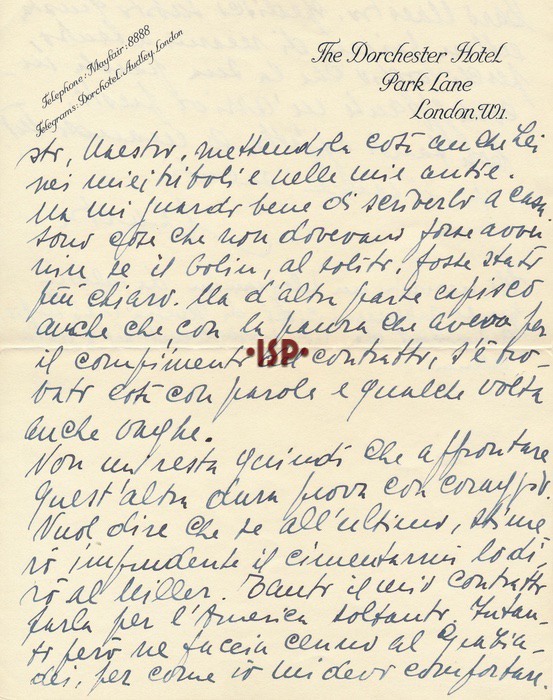 Telephone: Mayfair: 8888
Telegrams: Dorchotel, Audley, London
The Dorchester Hotel
Park Lane
London, W.1.
sto, Maestro, mettendola così anche Lei
nei miei triboli e nelle mie ansie.
Ma mi guardo bene di scriverlo a casa.
Sono cose che non dovevano forse avve
nire se il Colin, al solito, fosse stato
più chiaro. Ma d'altra parte capisco
anche che con la paura che aveva per
il compimento del contratto, s'è tro-
vato così con parole e qualche volta
anche vaghe.
Non mi resta quindi che affrontare
quest'altra dura prova con coraggio.
Vuol dire che se all'ultimo, stime
rò imprudente il cimentarmi lo di,
rò al Miller. Tanto il mio contratto
parla per l'America soltanto. Intan-
to però ne faccia cenno al Grazia-
dei, per come io mi devo comportare.
ISP